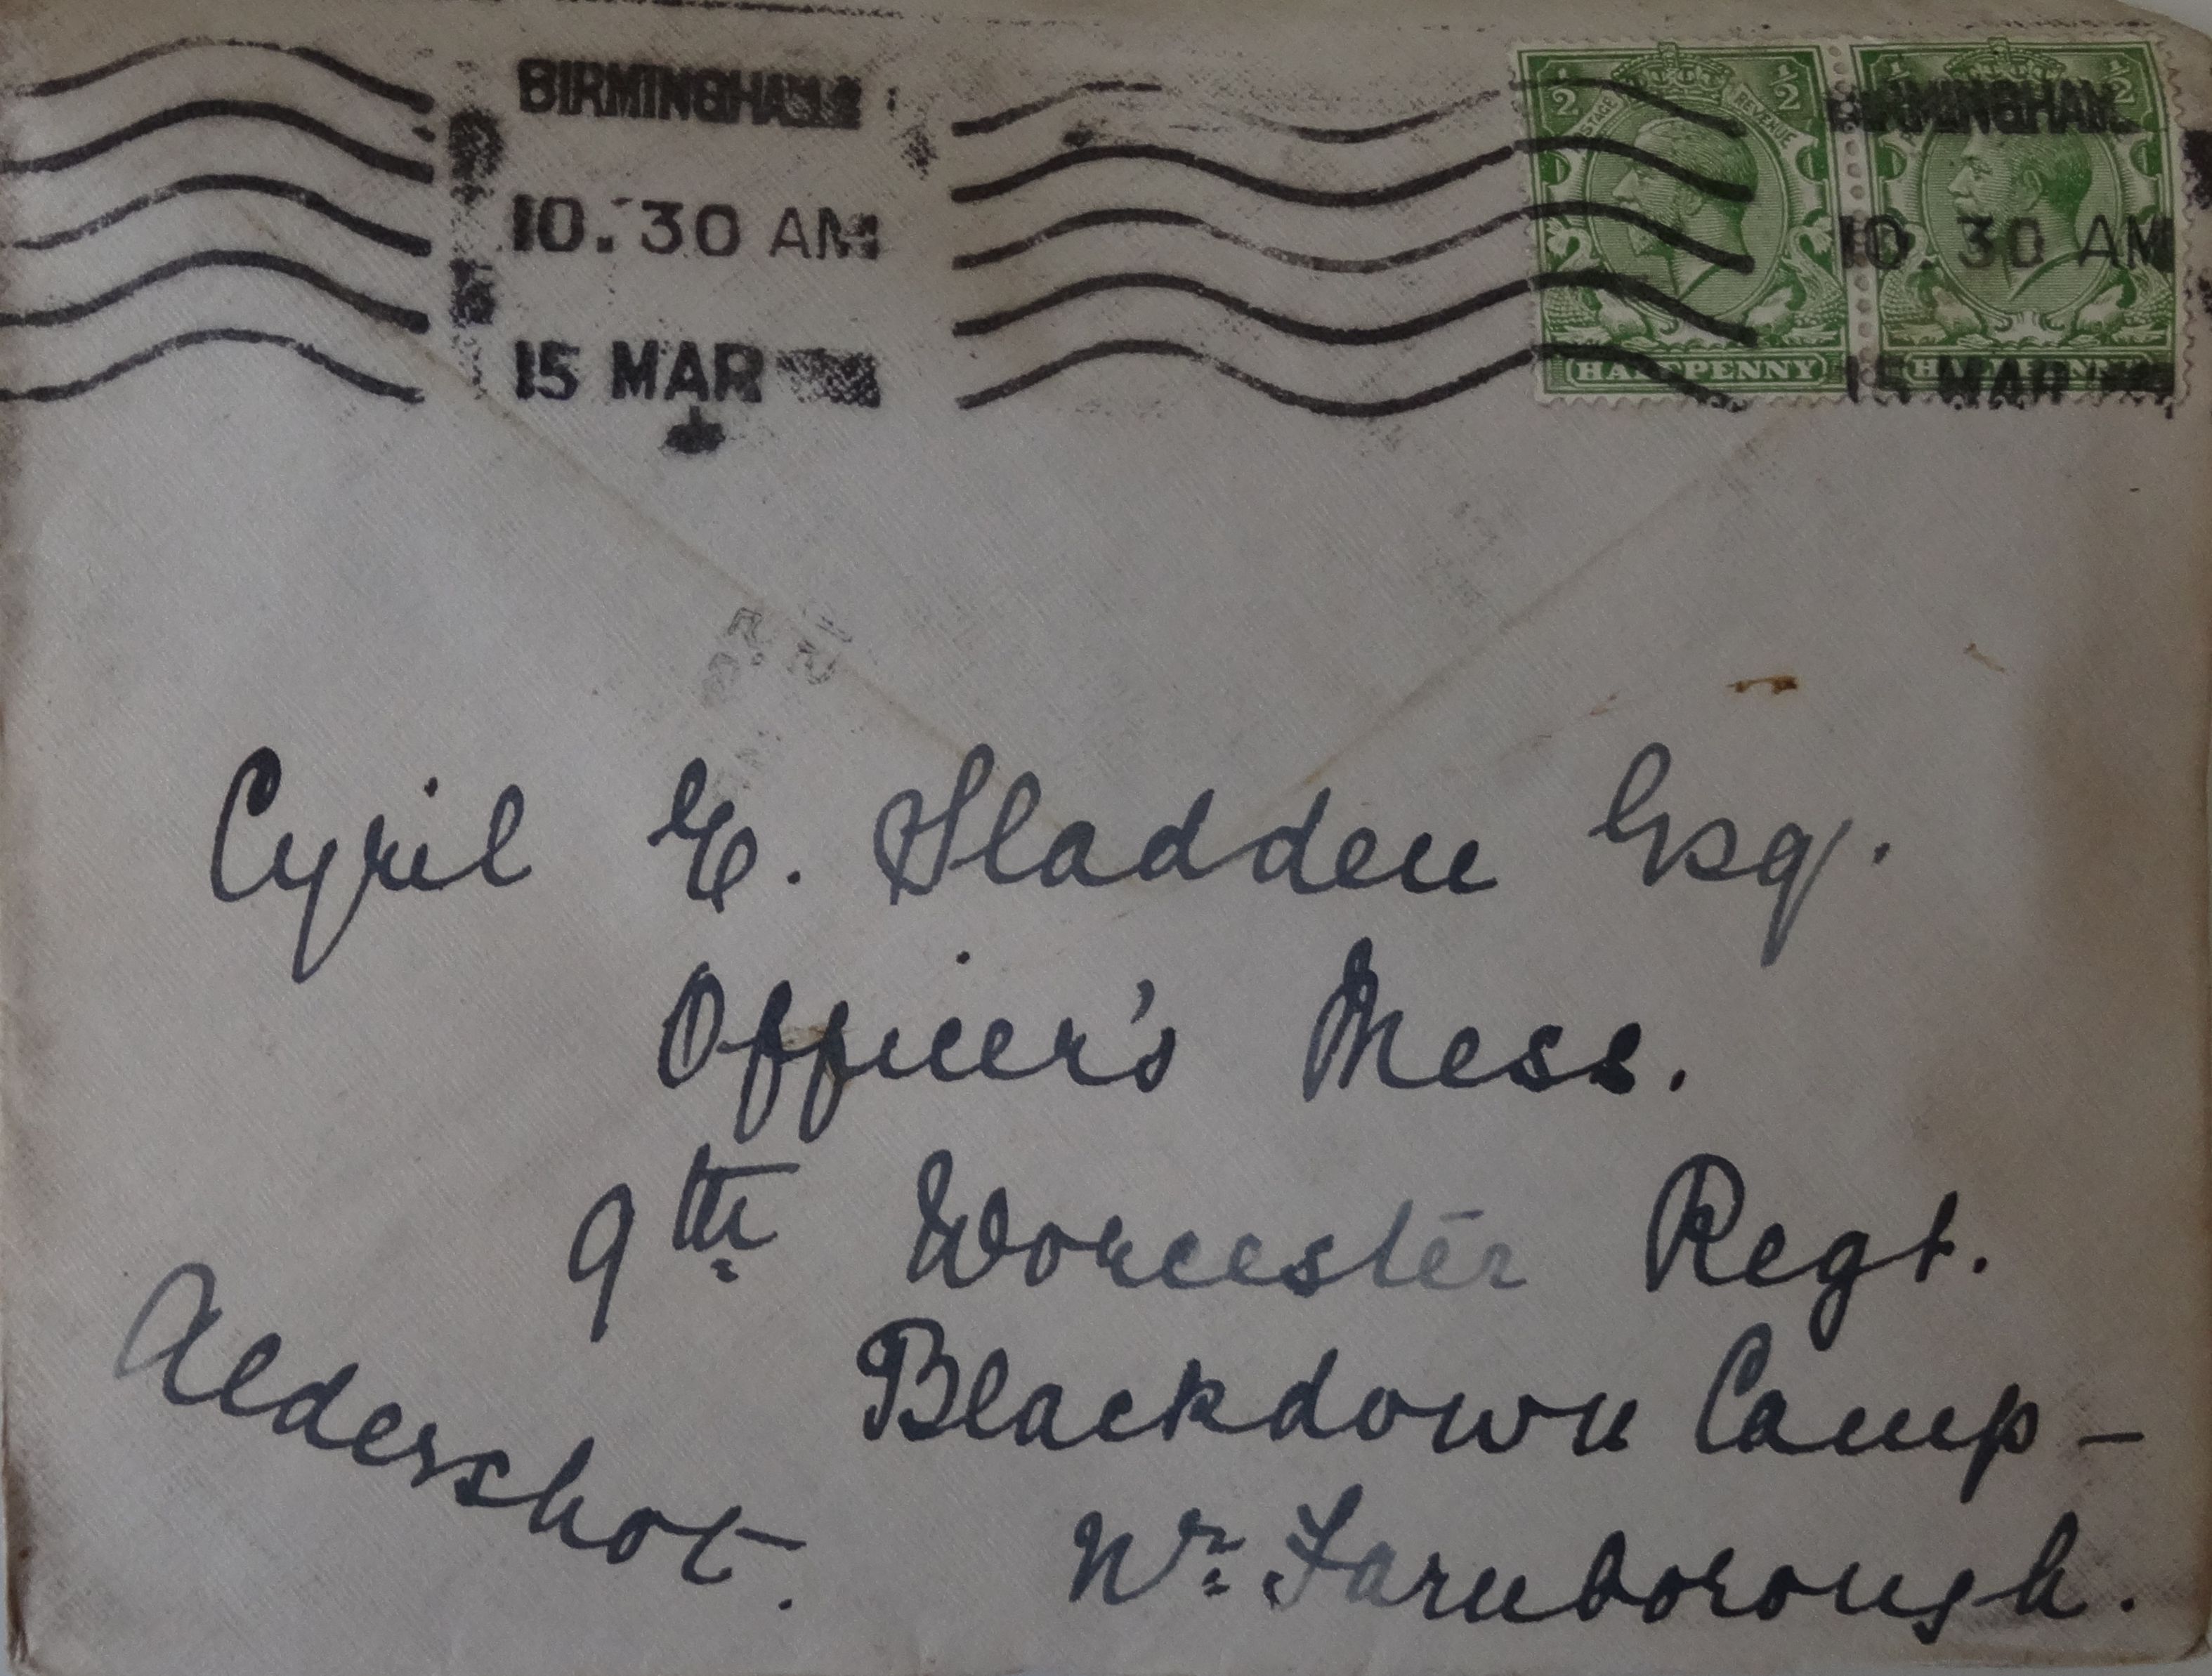 BIRMINGHAM
10. 30 AM
15 MAR
½ ½
POSTAGE REVENUE
HALFPENNY
BIRMINGHAM
10. 30 AM
15 MAR
½ ½
HALFPENNY
Cyril E. Sladden Esq.
Officer's Mess.
9th Worcester Regt.
Blackdown Camp –
Nr. Farnborough.
Aldershot.